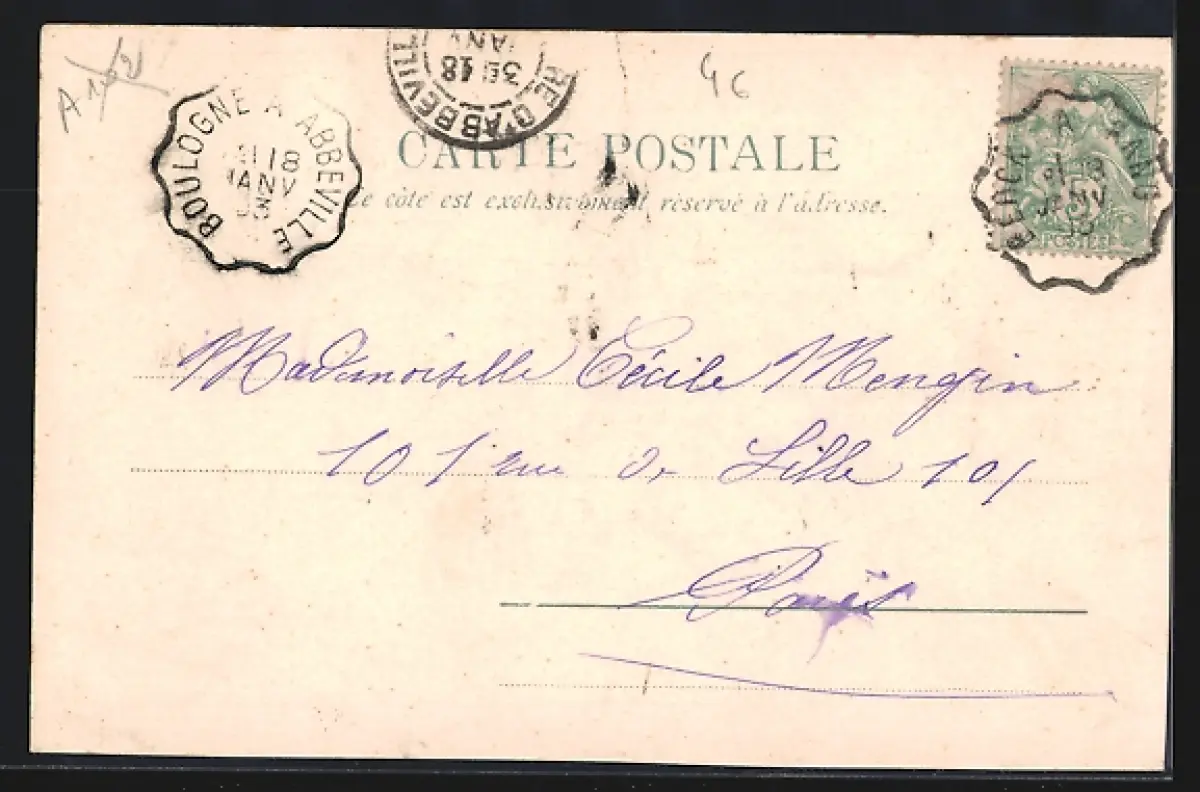 A
46
BOULOGNE A ABBEVILLE
18
JANV
RE D'ABBEVILL
3E 18
JANV
CARTE POSTALE
Ce côté est exclusivement réservé à l'adresse.
18
JANV
POSTES
Mademoiselle Cécile Mengin
101 rue de Lille 101
Paris